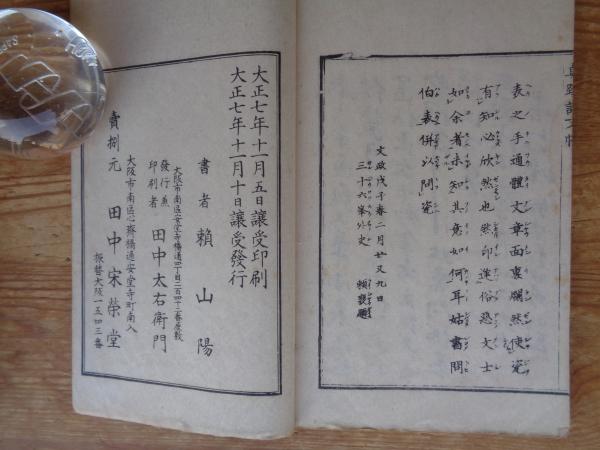 表之手通體文章面裏爛然使瓷
有知必欣然也然印進俗恐文士
如余者未知其意如何耳姑書問
伯表併以問瓷
文政戊子春二月廿又九日
三十六峯外史 頼襄題
大正七年十一月五日讓受印刷
大正七年十一月十日讓受發行
書者 頼山陽
大阪市南區安堂寺橋通四丁目二百四十二番屋敷
發行兼印刷者 田中太右衛門
大阪市南區心齋橋通安堂寺町南入
賣捌元 田中宋榮堂
振替大阪一五四三番